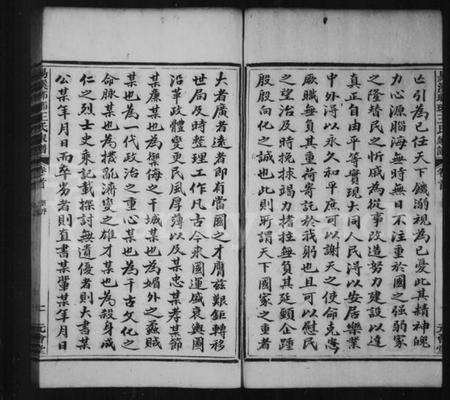 亡引為己任天下饑溺視為己憂此其精神魄
力心源腦海無時無日不注重於國之強弱家
之隆替民之忻戚為從事改造努力建設以達
真正自由平等實現大同人民得以安居樂業
中外得以永久和平庶可以謝天之使命克盡
厥職無負其重荷寄託於我躬也且可以慰民
之望治及時挽捄竭力撐拄無負其延頸企踵
殷殷向化之誠也此則所謂天下國家之重者
大者廣者遠者即有當國之才膺茲艱鉅轉移
世局及時整理工作凡古今來國運盛衰輿圖
沿革政體變更民風厚薄以及某忠某孝某節
某廉某也為禦侮之干城某也為媚外之蟊賊
某也為一代政治之重心某也為千古文化之
命脉某也為撥亂濟變之雄才某也為殺身成
仁之烈士史乘記載探討無遺優者則大書某
公某年月日而卒劣者則直書某輩某年月日